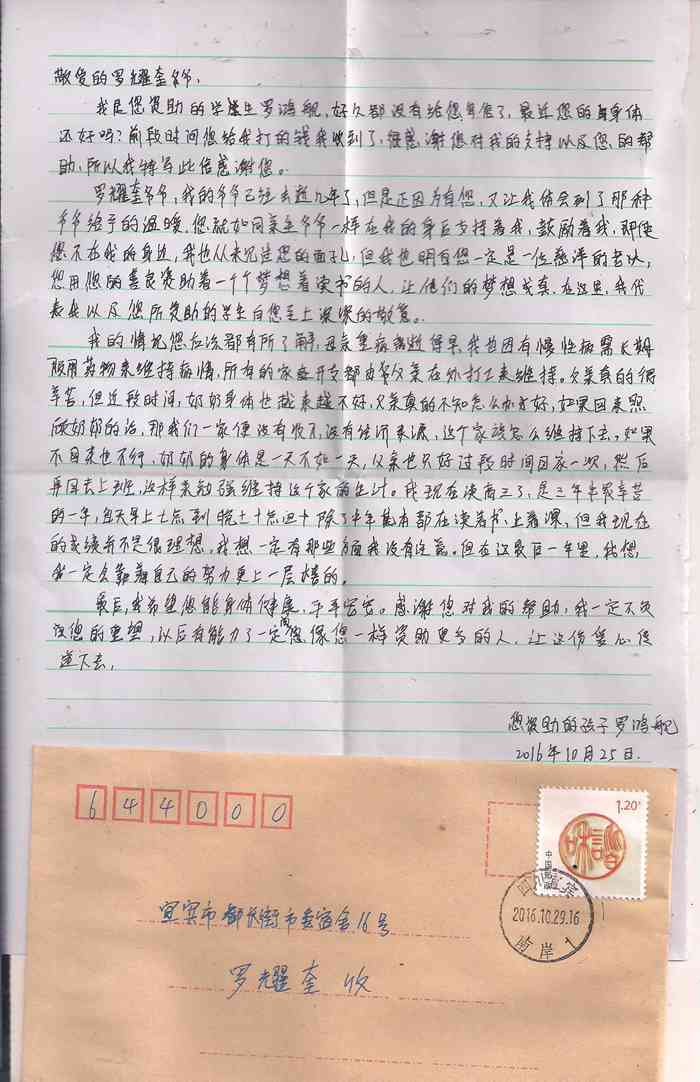 敬爱的罗耀奎爷爷：
我是您资助的学生罗鸿舰，好久都没有给您写信了，最近您的身体
还好吗？前段时间您给我打的钱我收到了，很感谢您对我的支持以及您的帮
助，所以我特写此信感谢您。
罗耀奎爷爷，我的爷爷已经去逝几年了，但是正因为有您，又让我体会到了那种
爷爷给予的温暖，您就如同亲生爷爷一样在我的身后支持着我，鼓励着我，即使
您不在我的身边，我也从未见过您的面孔，但我也明白您一定是一位慈祥的老人，
您用您的善良资助着一个个梦想着读书的人，让他们的梦想成真，在这里，我代
表我以及您所资助的学生向您至上深深的敬意。
我的情况您应该都有所了解，母亲重病离逝得早，我也因有慢性病需长期
服用药物来维持病情，所有的家庭开支都由父亲在外打工来维持，父亲真的很
辛苦，但近段时间，奶奶身体也越来越不好，父亲真的不知怎么办才好，如果回来照
顾奶奶的话，那我们一家便没有收入，没有经济来源，这个家该怎么维持下去，如果
不回来也不行，奶奶的身体是一天不如一天，父亲也只好过段时间回家一次，然后
再回去上班，这样来勉强维持这个家的生计。我现在读高三了，是三年来最辛苦
的一年，每天早上七点到晚上十点过十 除了中午基本都在读着书，上着课，但我现在
的成绩并不是很理想，我想一定有那些方面我没有注意。但在这最后一年里，
我一定会靠着自己的努力更上一层楼的。
最后，我希望您能身体健康，平平安安。感谢您对我的帮助，我一定不负
您的重望，以后有能力了一定会向您像您一样资助更多的人，让这份爱心传
递下去。
您资助的孩子罗鸿舰
2016年10月25日.
644000
1.20元
中国邮政
四川宜宾
2016.10.29.16
南岸 1
宜宾市都长街市委宿舍16号
罗耀奎 收